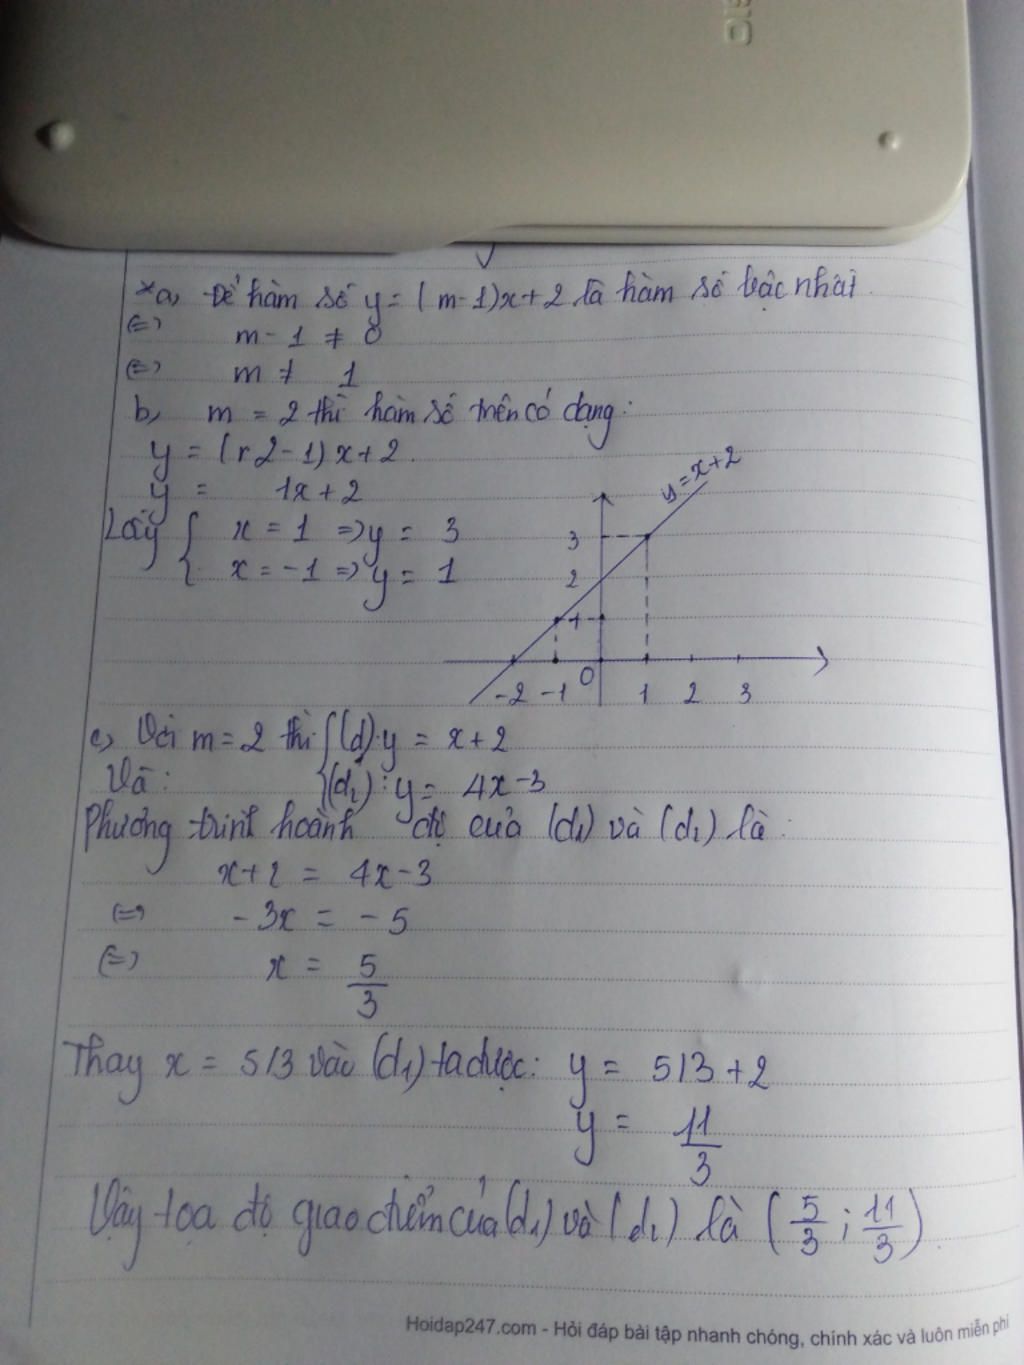 *a, Để hàm số y = (m-1)x+2 là hàm số bậc nhất.
(=) m - 1 ≠ 0
(=) m ≠ 1
b, m = 2 thì hàm số trên có dạng:
y = (r2-1)x+2.
y = 1x+2
Lấy { x = 1 => y = 3
x = -1 => y = 1
y = x+2
3
2
1
O
-2 -1 1 2 3
c, Với m = 2 thì {(d): y = x+2
Và: (d₂): y = 4x-3
Phương trình hoành độ của (d₁) và (d₂) là:
x+2 = 4x-3
(=) -3x = -5
(=) x = 5/3
Thay x = 5/3 vào (d₁) ta được: y = 5/3 + 2
y = 11/3
Vậy tọa độ giao điểm của (d₁) và (d₂) là (5/3 ; 11/3).
Hoidap247.com - Hỏi đáp bài tập nhanh chóng, chính xác và luôn miễn phí